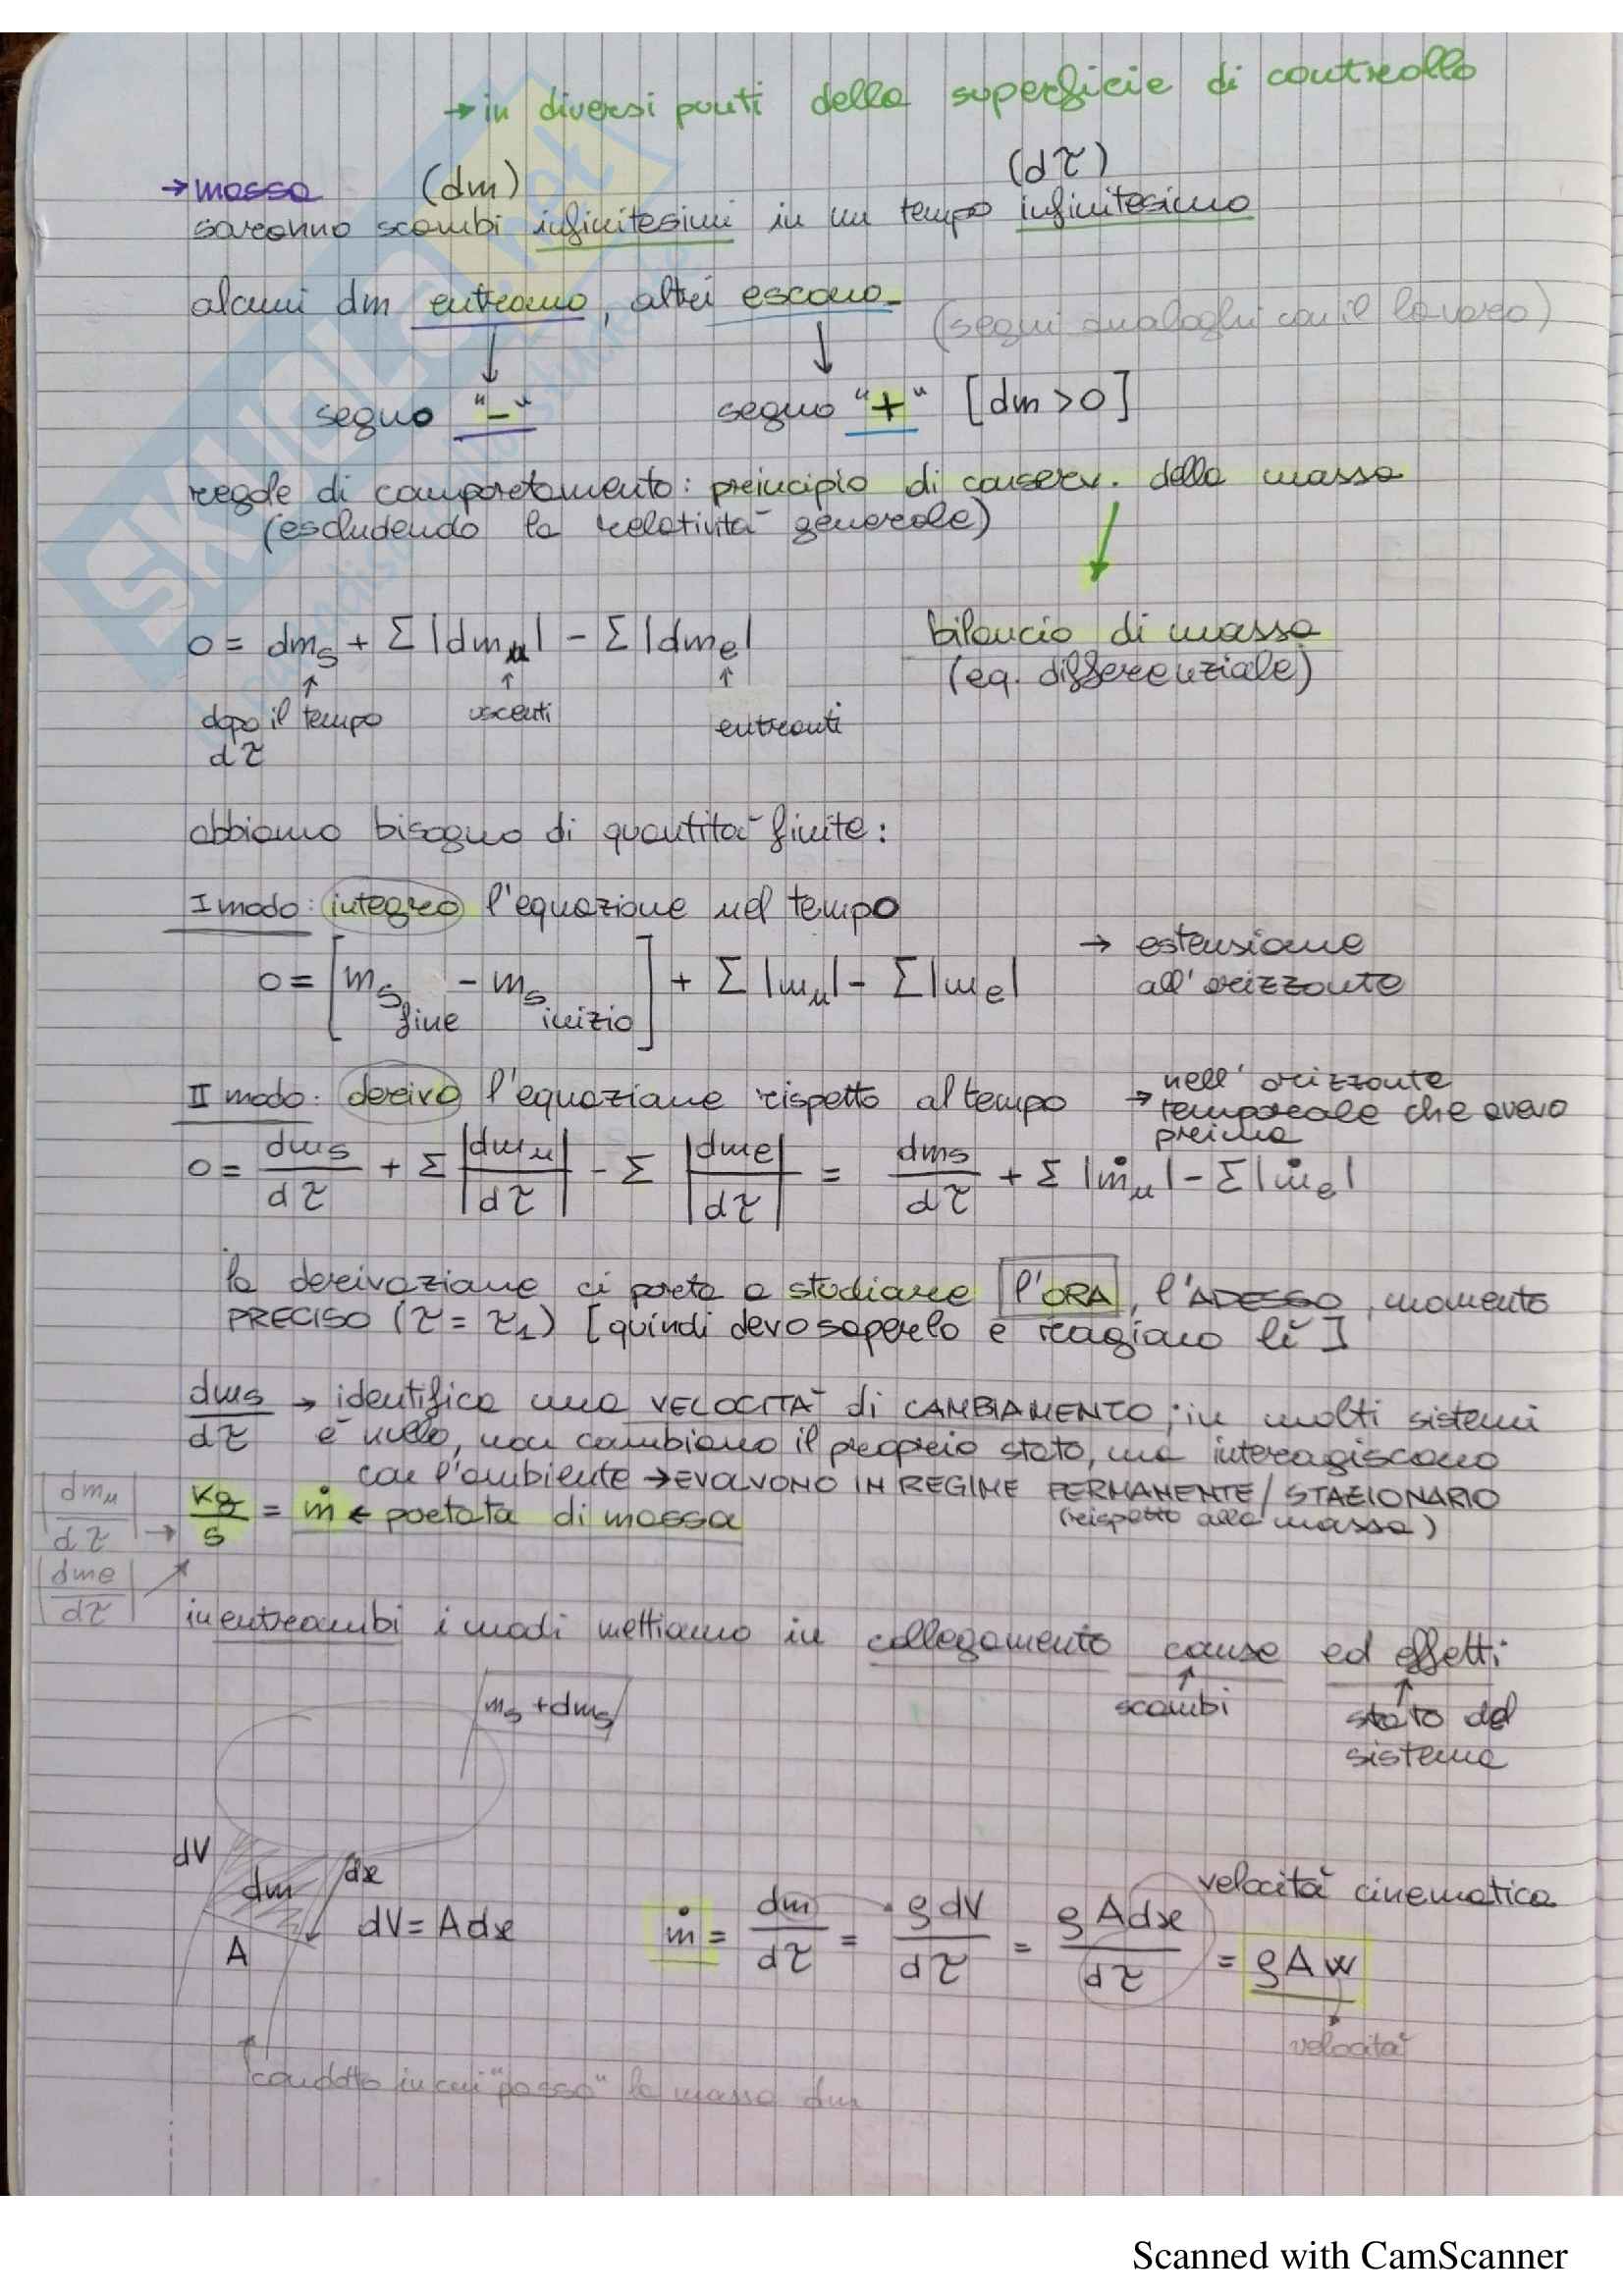 → in diversi punti della superficie di controllo
→ massa (dm) (dτ)
saranno scambi infinitesimi in un tempo infinitesimo
alcuni dm entrano, altri escono
(segni analoghi con il lavoro)
segno "-" segno "+" [dm>0]
regole di comportamento: principio di conserv. della massa
(escludendo la relatività generale)
0 = dms + Σ |dmu| - Σ |dme|
bilancio di massa
(eq. differenziale)
dopo il tempo dτ
uscenti
entranti
abbiamo bisogno di quantità finite:
I modo: integro l'equazione nel tempo
0 = [ms fine - ms inizio] + Σ |mu| - Σ |me|
→ estensione
all'orizzonte
II modo: derivo l'equazione rispetto al tempo
→ nell'orizzonte
temporale che avevo
prima
0 = dms/dτ + Σ |dmu/dτ| - Σ |dme/dτ| = dms/dτ + Σ |ṁu| - Σ |ṁe|
la derivazione ci porta a studiare l'ORA, l'ADESSO, momento
PRECISO (τ = τ1) [quindi devo saperlo e reagiano lì]
dms/dτ → identifica una VELOCITÀ di CAMBIAMENTO; in molti sistemi
è nullo, non cambiano il proprio stato, ma interagiscono
con l'ambiente → EVOLVONO IN REGIME PERMANENTE / STAZIONARIO
(rispetto alla massa)
|dmu/dτ| → kg/s = ṁ ← portata di massa
|dme/dτ|
in entrambi i modi mettiamo in collegamento cause ed effetti:
scambi
stato del
sistema
ms + dms
dV
dm
dx
A
dV = A dx
ṁ = dm/dτ = ρ dV/dτ = ρ A dx/dτ = ρ A w
velocità cinematica
velocità
condotto in cui "passa" la massa dm
SKUOLA.net
Scanned with CamScanner